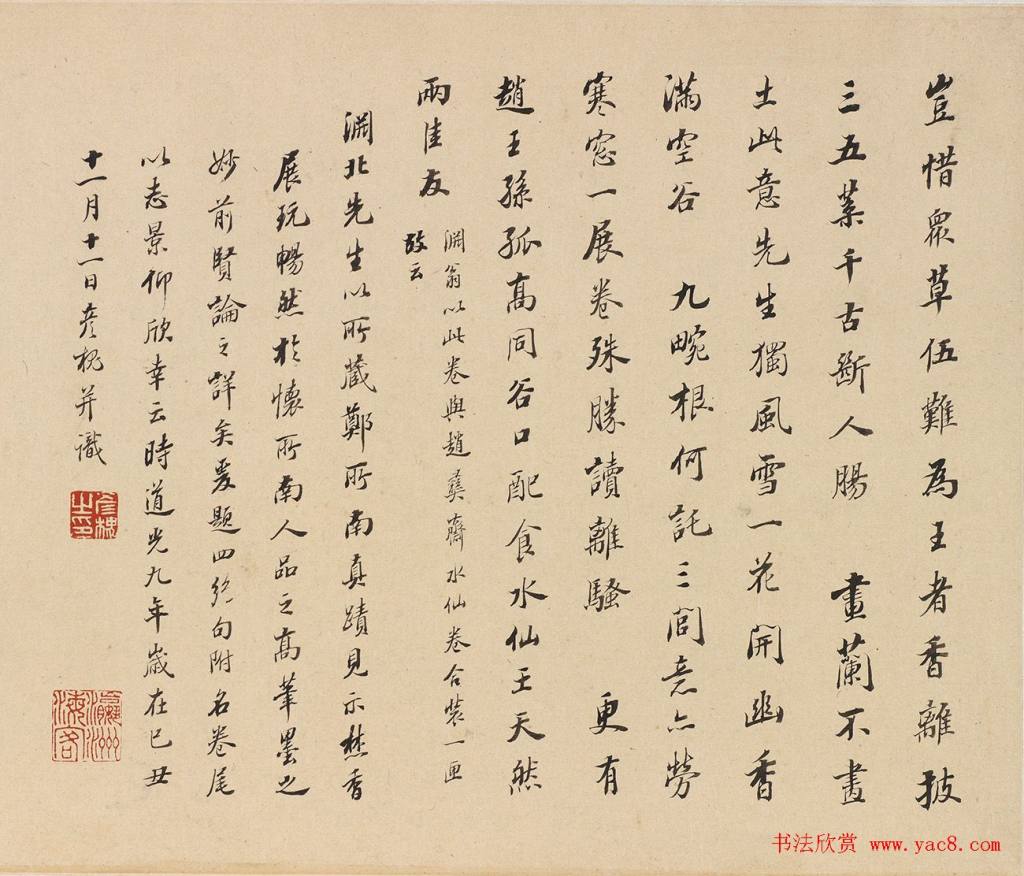 豈惜眾草伍難為王者香離披
三五葉千古斷人腸　畫蘭不畫
土此意先生獨風雪一花開幽香
滿空谷　九畹根何託三閭意亦勞
寒窓一展卷殊勝讀離騷　更有
趙王孫孤高同谷口配食水仙王天然
兩佳友
淵翁以此卷與趙彝齋水仙卷合裝一匣
故云
淵北先生以所藏鄭所南真蹟見示焚香
展玩暢然於懷所南人品之高筆墨之
妙前賢論之詳矣爰題四絕句附名卷尾
以志景仰欣幸云時道光九年歲在己丑
十一月十一日彥槐并識
彥槐之印
瀛洲海客
书法欣赏 www.yac8.com